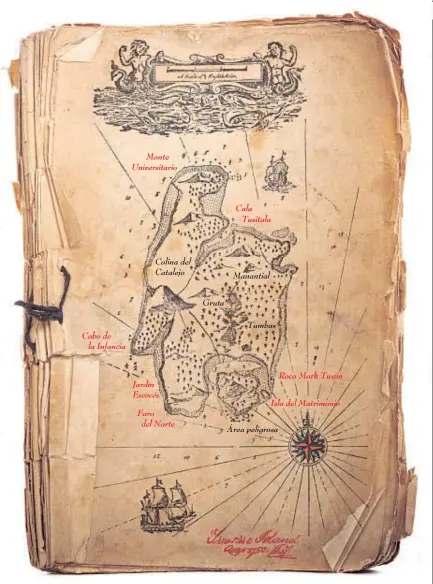 Monte
Universitario
Cala
Tusitala
Colina del
Catalejo
Manantial
Gruta
Tumbas
Cabo de
la Infancia
Jardín
Escocés
Roca Mark Twain
Isla del Matrimonio
Faro
del Norte
Área peligrosa